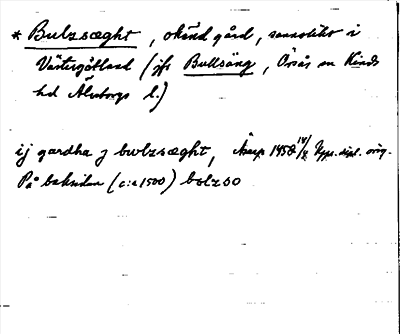 * Bulzsæght, okänd gård, sannolikt i
Västergötland (jfr Bullsäng, Örsås sn Kinds
hd Älvsborgs l.)
ij gardha j bwlzsæght, 1458 14/4 dipl. orig.
På baksidan (c:a 1500) bolzso